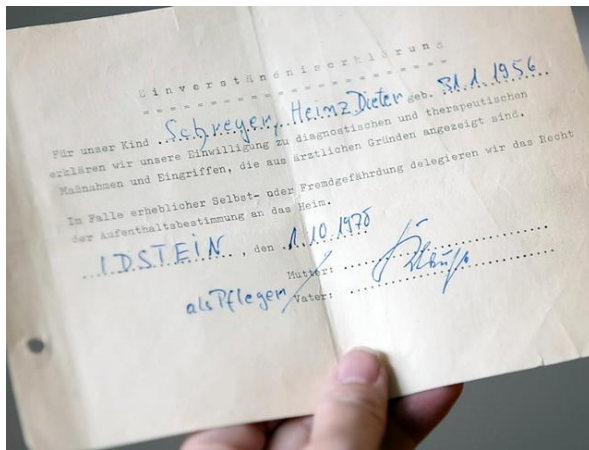 Einverständniserklärung
Für unser Kind Schreyer, Heinz Dieter geb. 31.1.1956
erklären wir unsere Einwilligung zu diagnostischen und therapeutischen
Maßnahmen und Eingriffen, die aus ärztlichen Gründen angezeigt sind.
Im Falle erheblicher Selbst- oder Fremdgefährdung delegieren wir das Recht
der Aufenthaltsbestimmung an das Heim.
IDSTEIN, den 1.10.1970
Mutter:
als Pfleger / Vater: